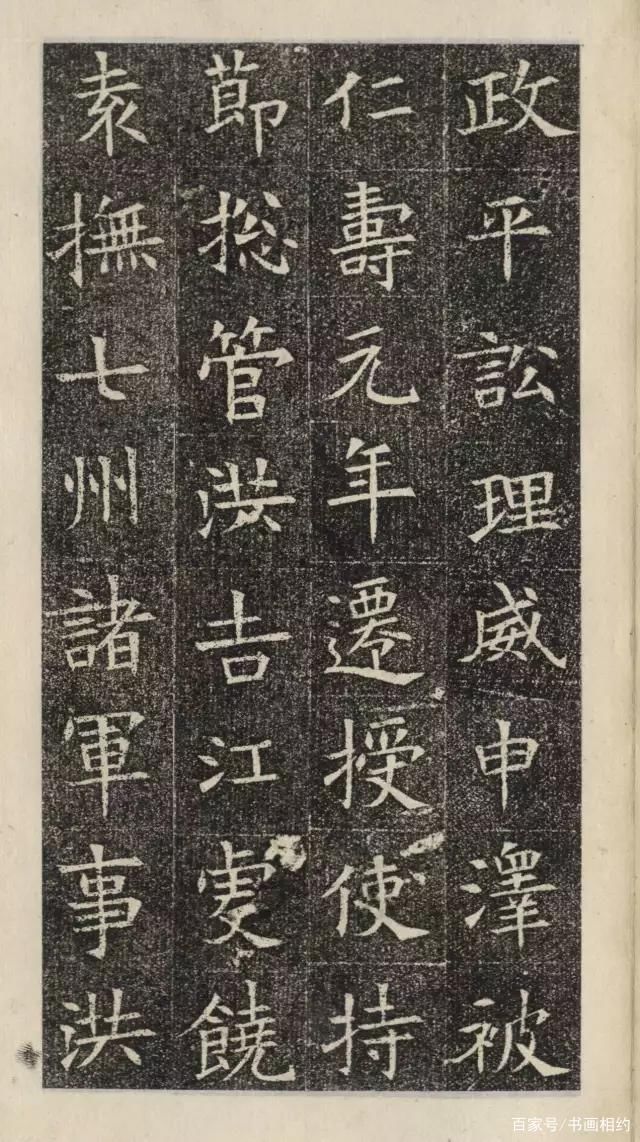 政平訟理威申澤被
仁壽元年遷授使持
節総管洪吉江虔饒
袁撫七州諸軍事洪
百家号/书画相约